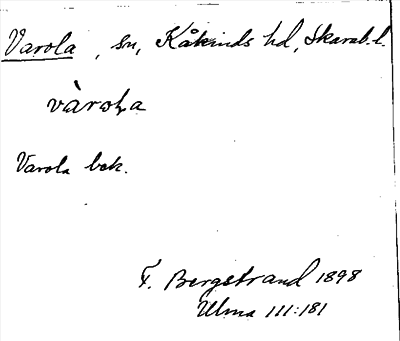 Varola, sn, Kåkinds hd, Skarab. l.
Varola bok.
F. Bergstrand 1898
Ulma 111:181